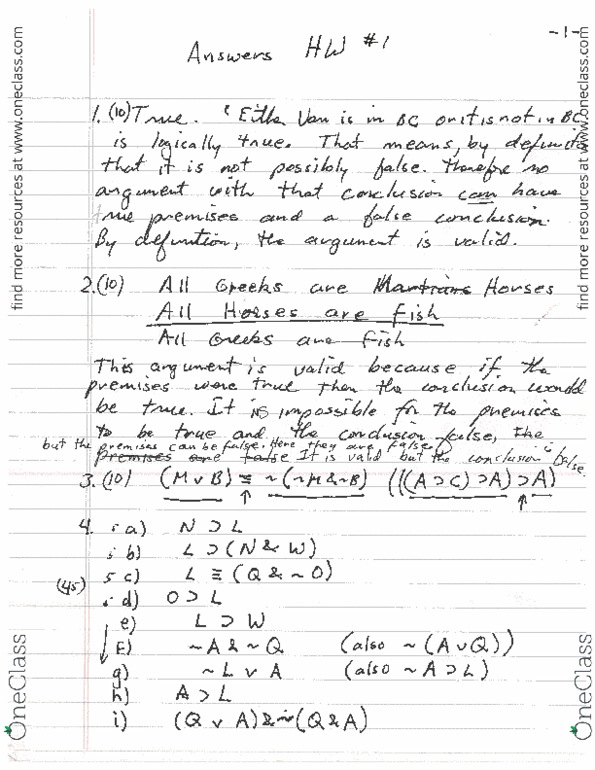 -1-
Answers HW #1
1. (10) True. "Either Van is in BC or it is not in BC
is logically true. That means, by definition
that it is not possibly false. Therefore no
argument with that conclusion can have
true premises and a false conclusion.
By definition, the argument is valid.
2. (10) All Greeks are Horses
All Horses are Fish
All Greeks are Fish
This argument is valid because if the
premises were true then the conclusion would
be true. It is impossible for the premises
to be true and the conclusion false, the
but the premises can be false. Here they are false.
premises are false It is valid but the conclusion is false.
3. (10) (M ∨ B) ≡ ~(~M & ~B) (((A ⊃ C) ⊃ A) ⊃ A)
4. 5 a) N ⊃ L
5 b) L ⊃ (N & W)
5 c) L ≡ (Q & ~ O)
(45) 5 d) O ⊃ L
e) L ⊃ W
F) ~A & ~Q (also ~ (A ∨ Q))
g) ~L ∨ A (also ~ A ⊃ L)
h) A ⊃ L
i) (Q ∨ A) & ~(Q & A)
find more resources at www.oneclass.com
OneClass
find more resources at www.oneclass.com
OneClass